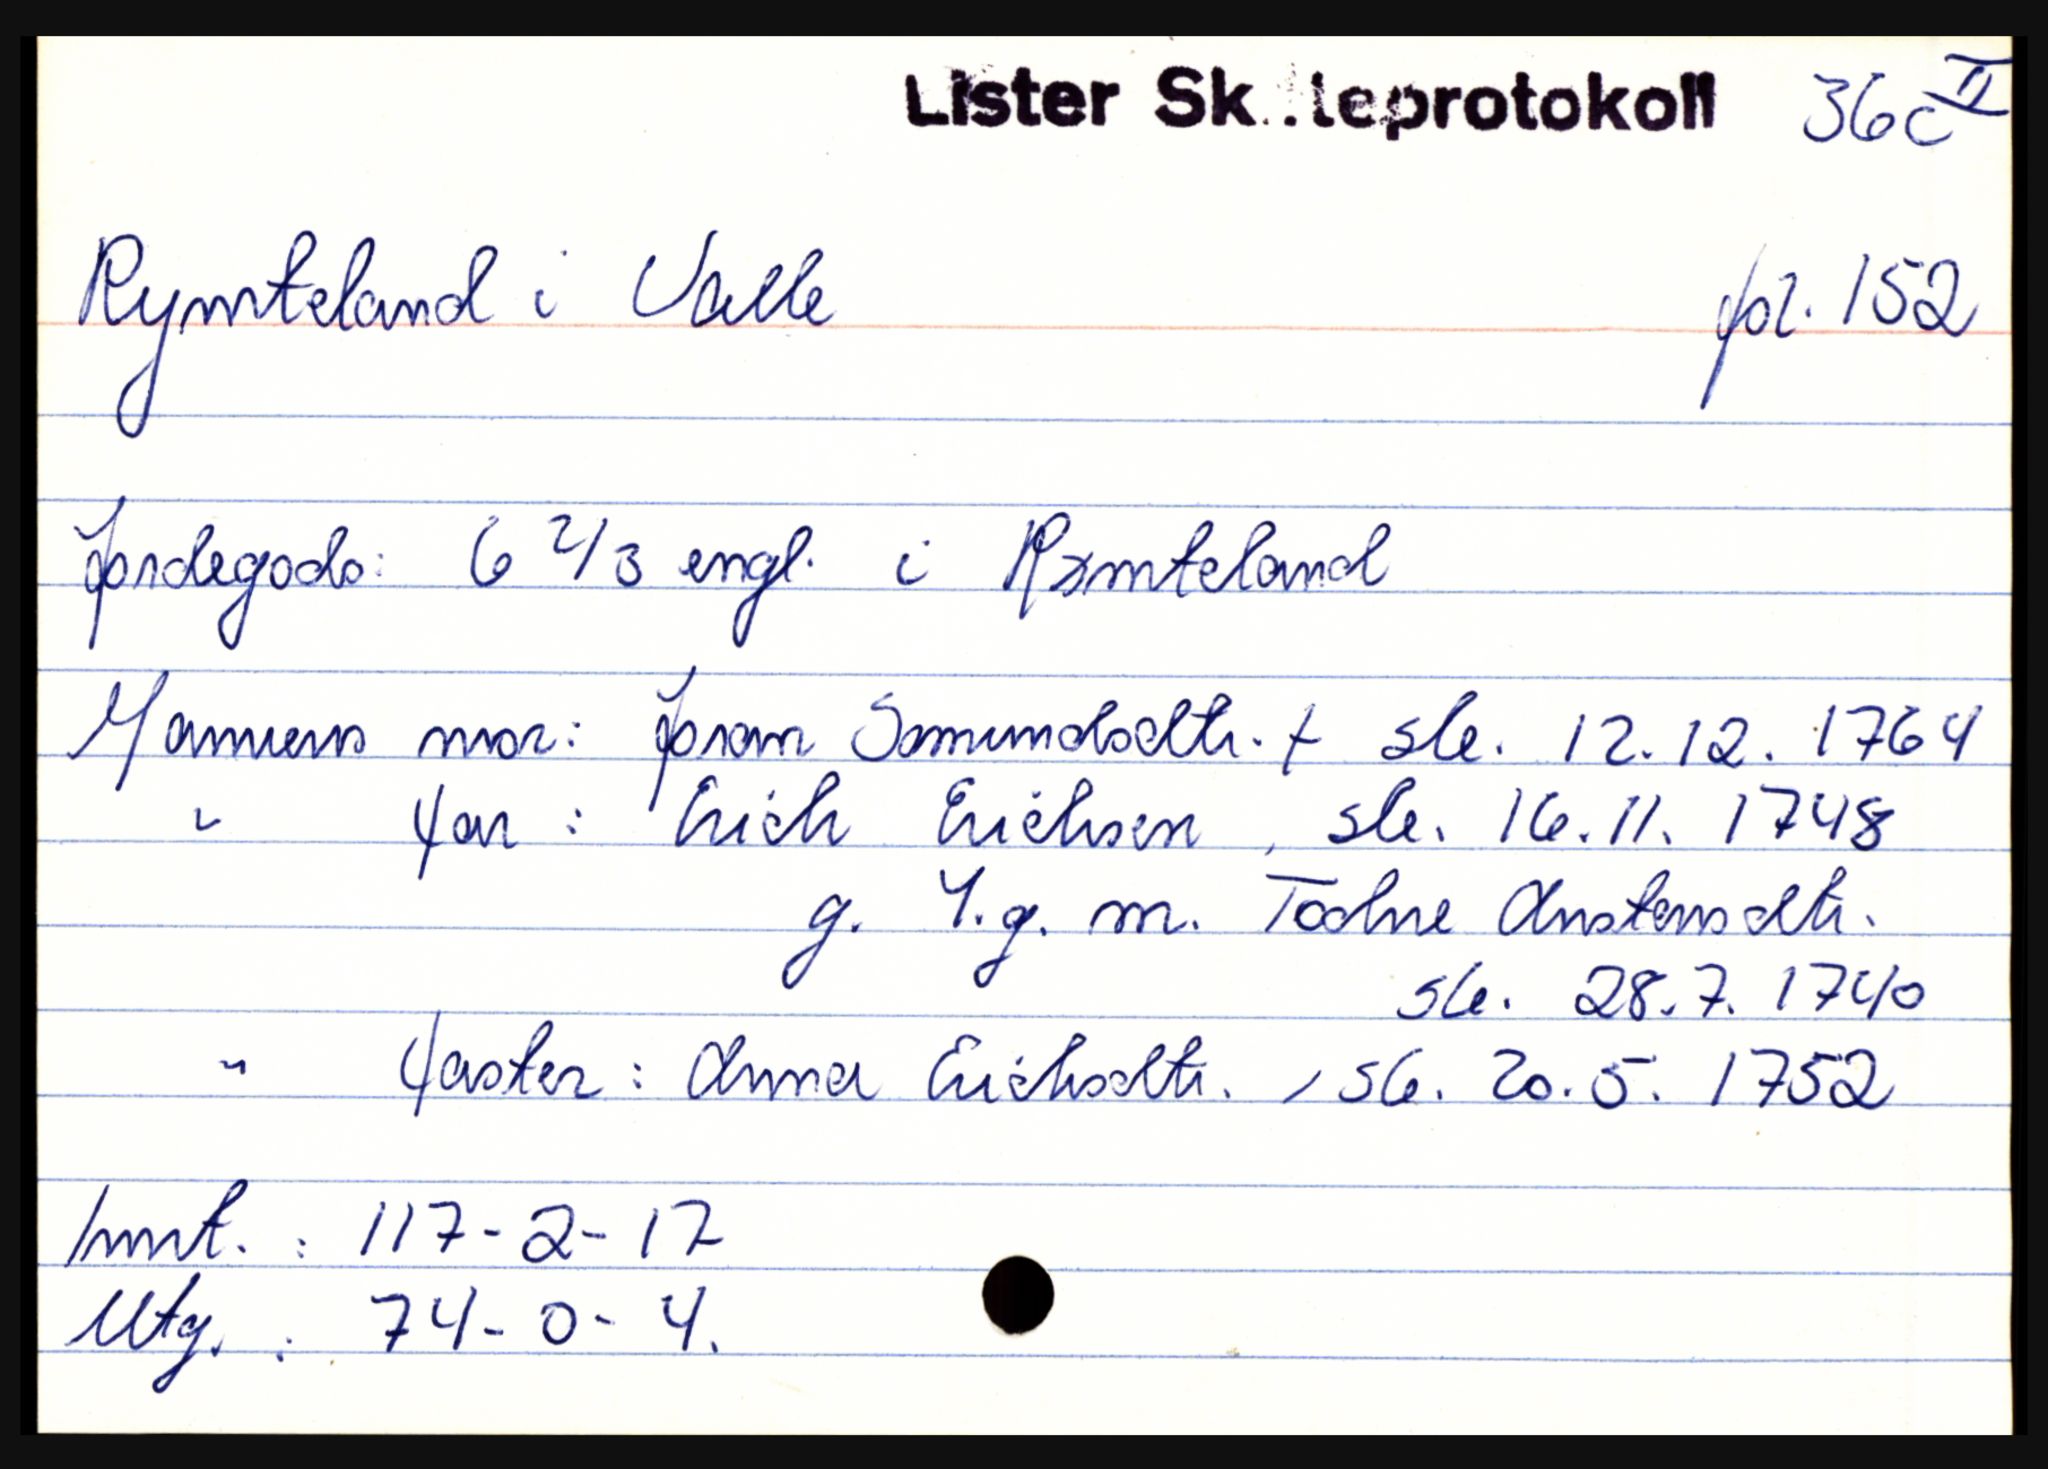 Lister Sk..teprotokoll 36c II
Rymteland i Valle fol. 152
Jordegods: 6 2/3 engl. i Rømteland
Mannens mor: Joran Samundsdtr. + ske. 12.12.1764
" far: Erich Erichsen, ske. 16.11.1748
g. 1.g. m. Todne Anstensdtr.
sk. 28.7. 1740
" faster: Anna Erichsdtr., sk. 20.5. 1752
Innt. : 117-2-12
Utg. : 74-0-4.